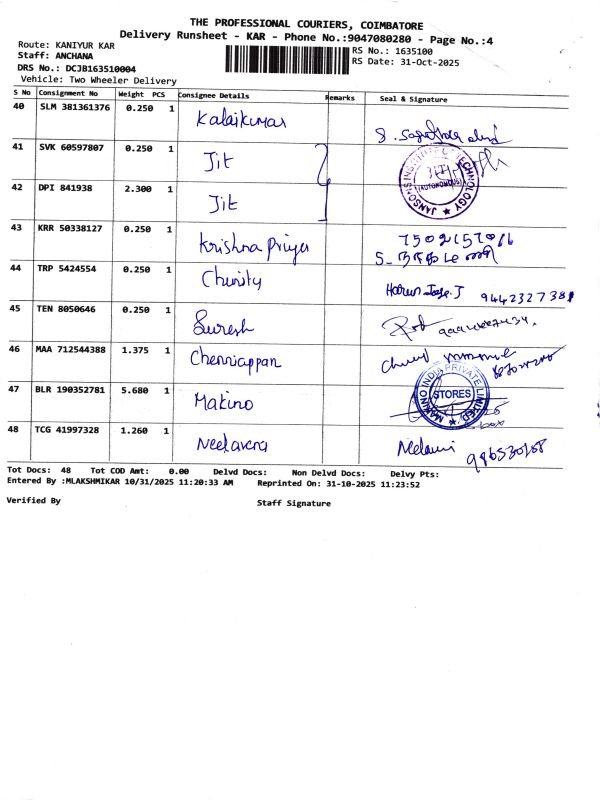 THE PROFESSIONAL COURIERS, COIMBATORE
Delivery Runsheet - KAR - Phone No.:9047080280 - Page No.:4
Route: KANIYUR KAR
Staff: ANCHANA
DRS No.: DCJB163510004
Vehicle: Two Wheeler Delivery
RS No.: 1635100
RS Date: 31-Oct-2025
S No Consignment No Weight PCS Consignee Details Remarks Seal & Signature
40 SLM 381361376 0.250 1 Kalaikumar
41 SVK 60597807 0.250 1 Jit
42 DPI 841938 2.300 1 Jit
JANSONS INSTITUTE OF TECHNOLOGY
JIT
(AUTONOMOUS)
43 KRR 50338127 0.250 1 Krishna Priya
44 TRP 5424554 0.250 1 Chrisity 9442327381
45 TEN 8050646 0.250 1 Suresh
46 MAA 712544388 1.375 1 Chenniappan
47 BLR 190352781 5.680 1 Makino
MAKINO INDIA PRIVATE LIMITED
STORES
48 TCG 41997328 1.260 1
Tot Docs: 48 Tot COD Amt: 0.00 Delvd Docs: Non Delvd Docs: Delvy Pts:
Entered By :MLAKSHMIKAR 10/31/2025 11:20:33 AM Reprinted On: 31-10-2025 11:23:52
Verified By Staff Signature